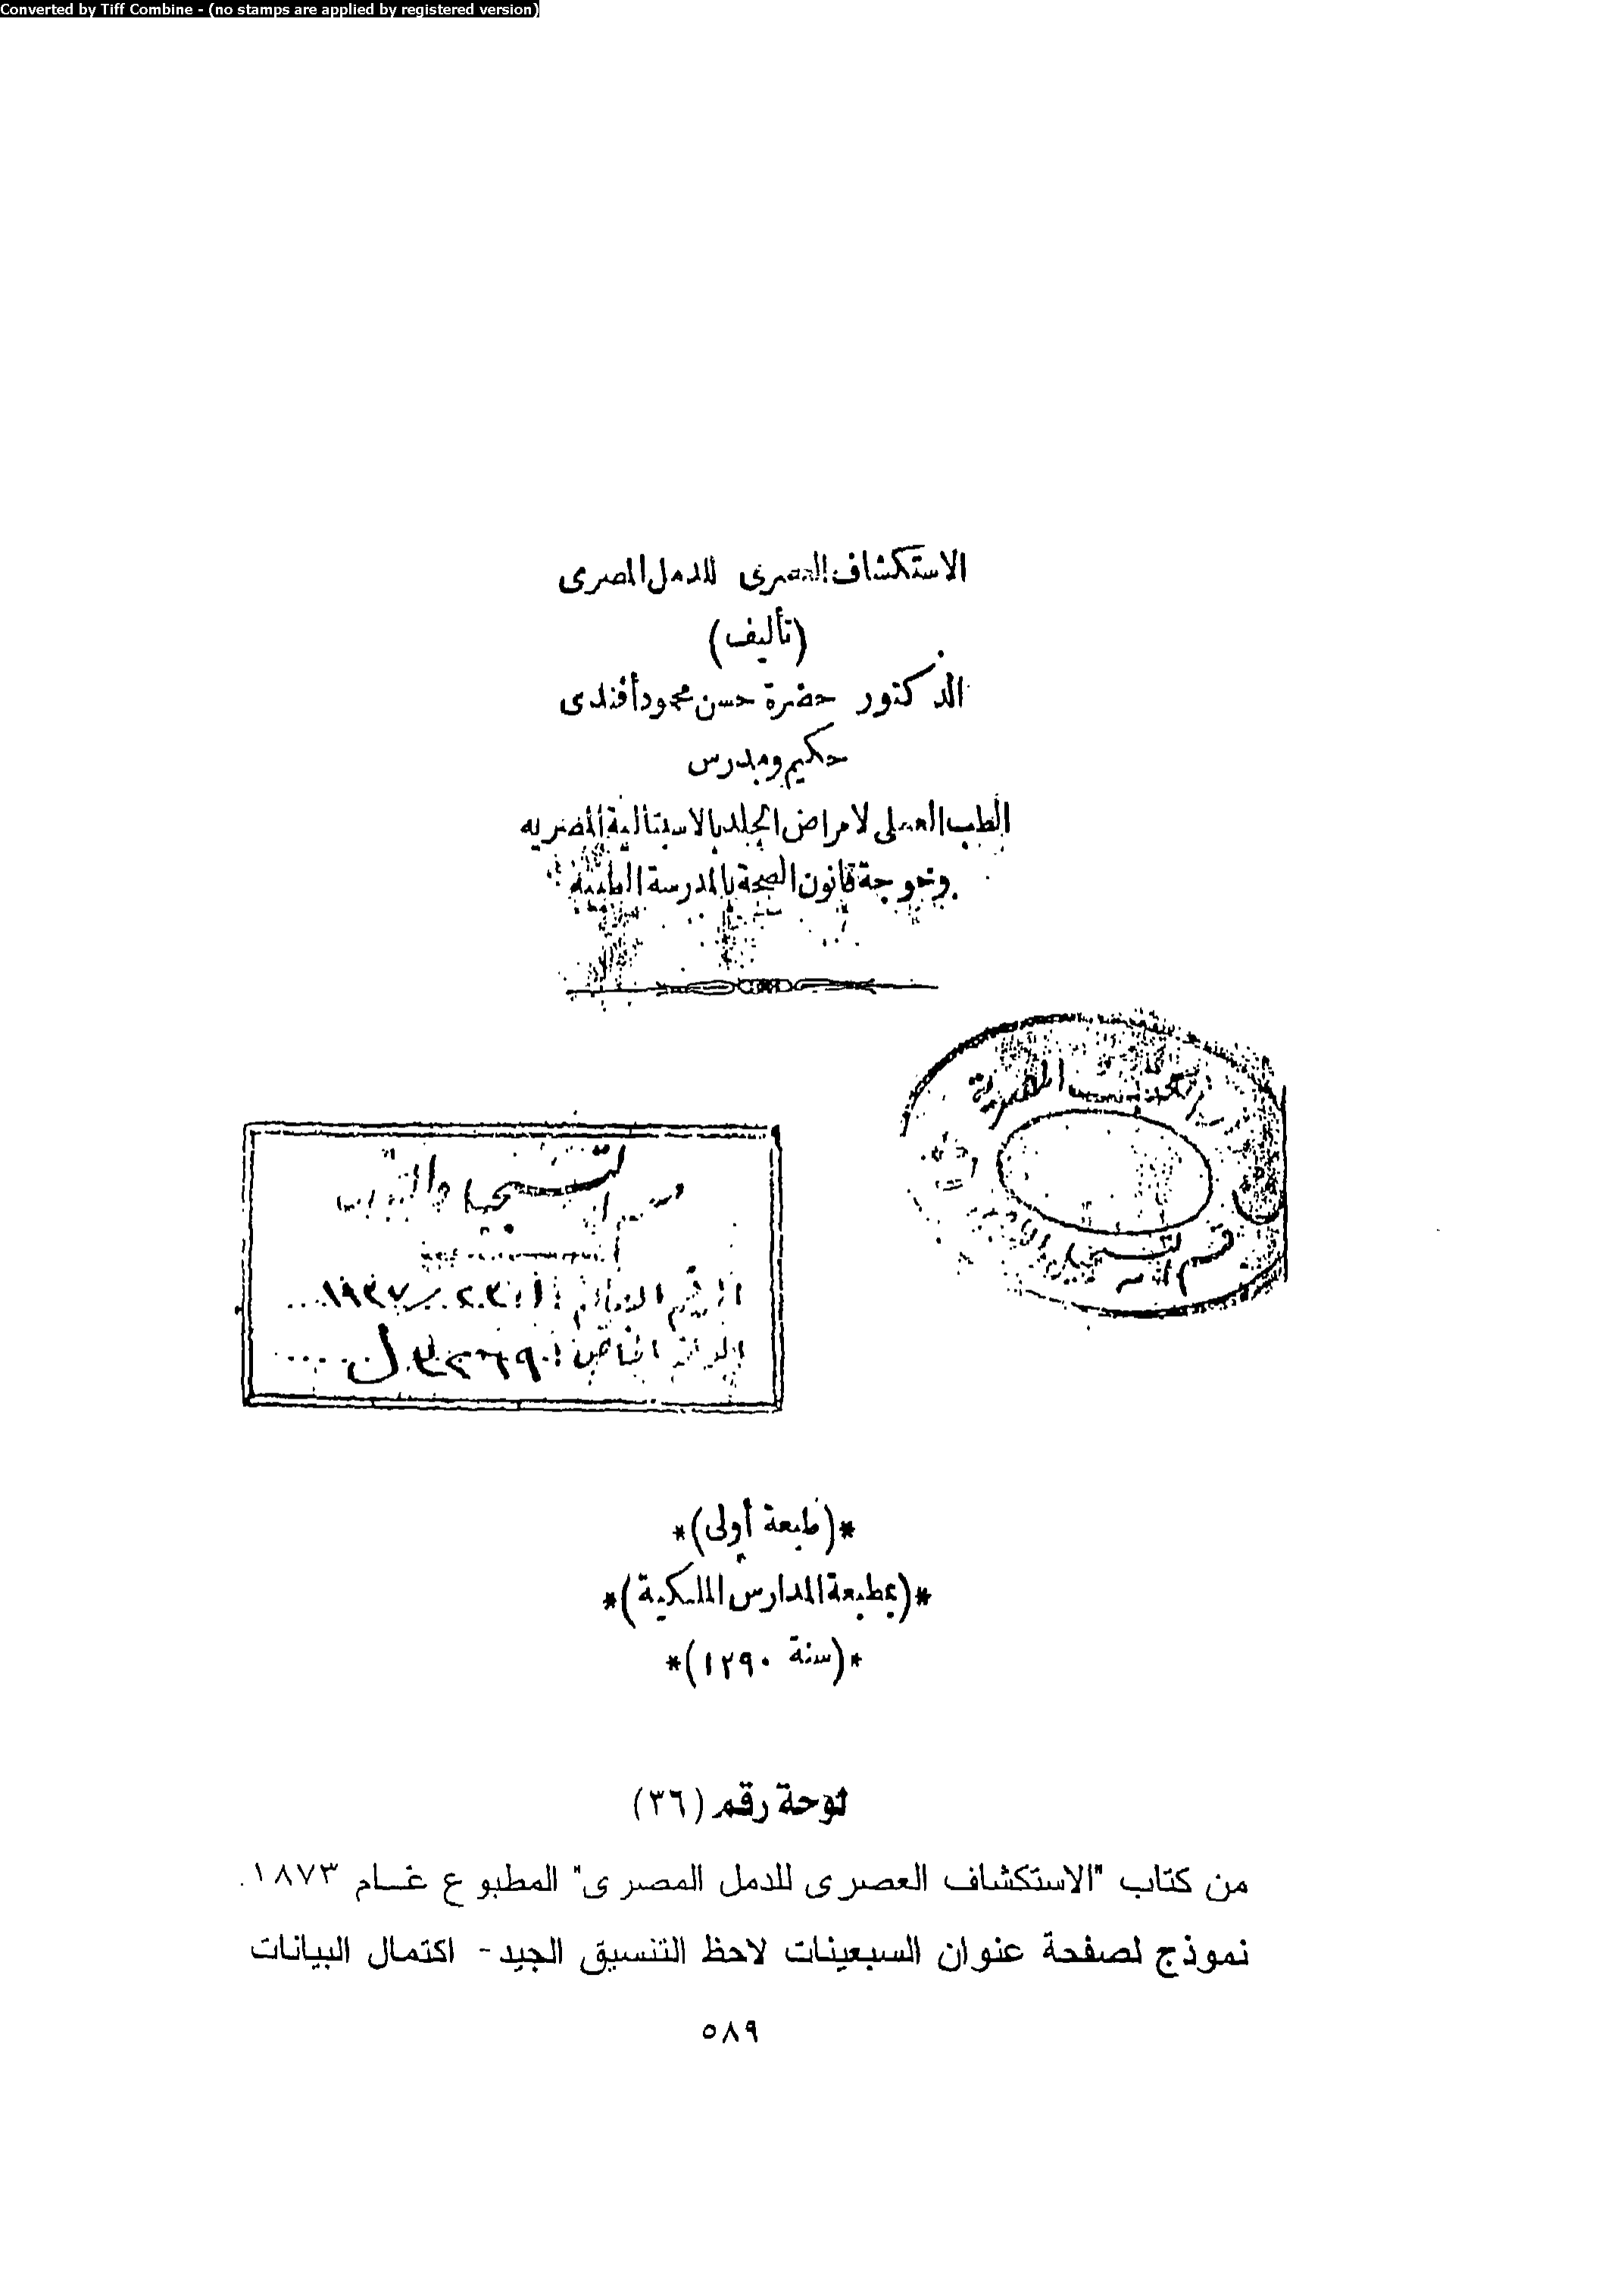 Converted by Tiff Combine - (no stamps are applied by registered version)
الاستكشاف العصرى للدمل المصرى
(تأليف)
الدكتور حضرة حسن محمود أفندى
حكيم ومدرس
الطب العملى لامراض الجلد بالاسبتالية المصريه
وخوجة قانون الصحة بالمدرسة الطبية
الكتب المصرية
قسم التسجيل
الرقم العام
الرقم الخاص
*(طبعة أولى)*
*(بمطبعة المدارس الملكية)*
*(سنة ١٢٩٠)*
لوحة رقم (٣٦)
من كتاب "الاستكشاف العصرى للدمل المصرى" المطبوع عام ١٨٧٣.
نموذج لصفحة عنوان السبعينات لاحظ التنسيق الجيد - اكتمال البيانات
٥٨٩